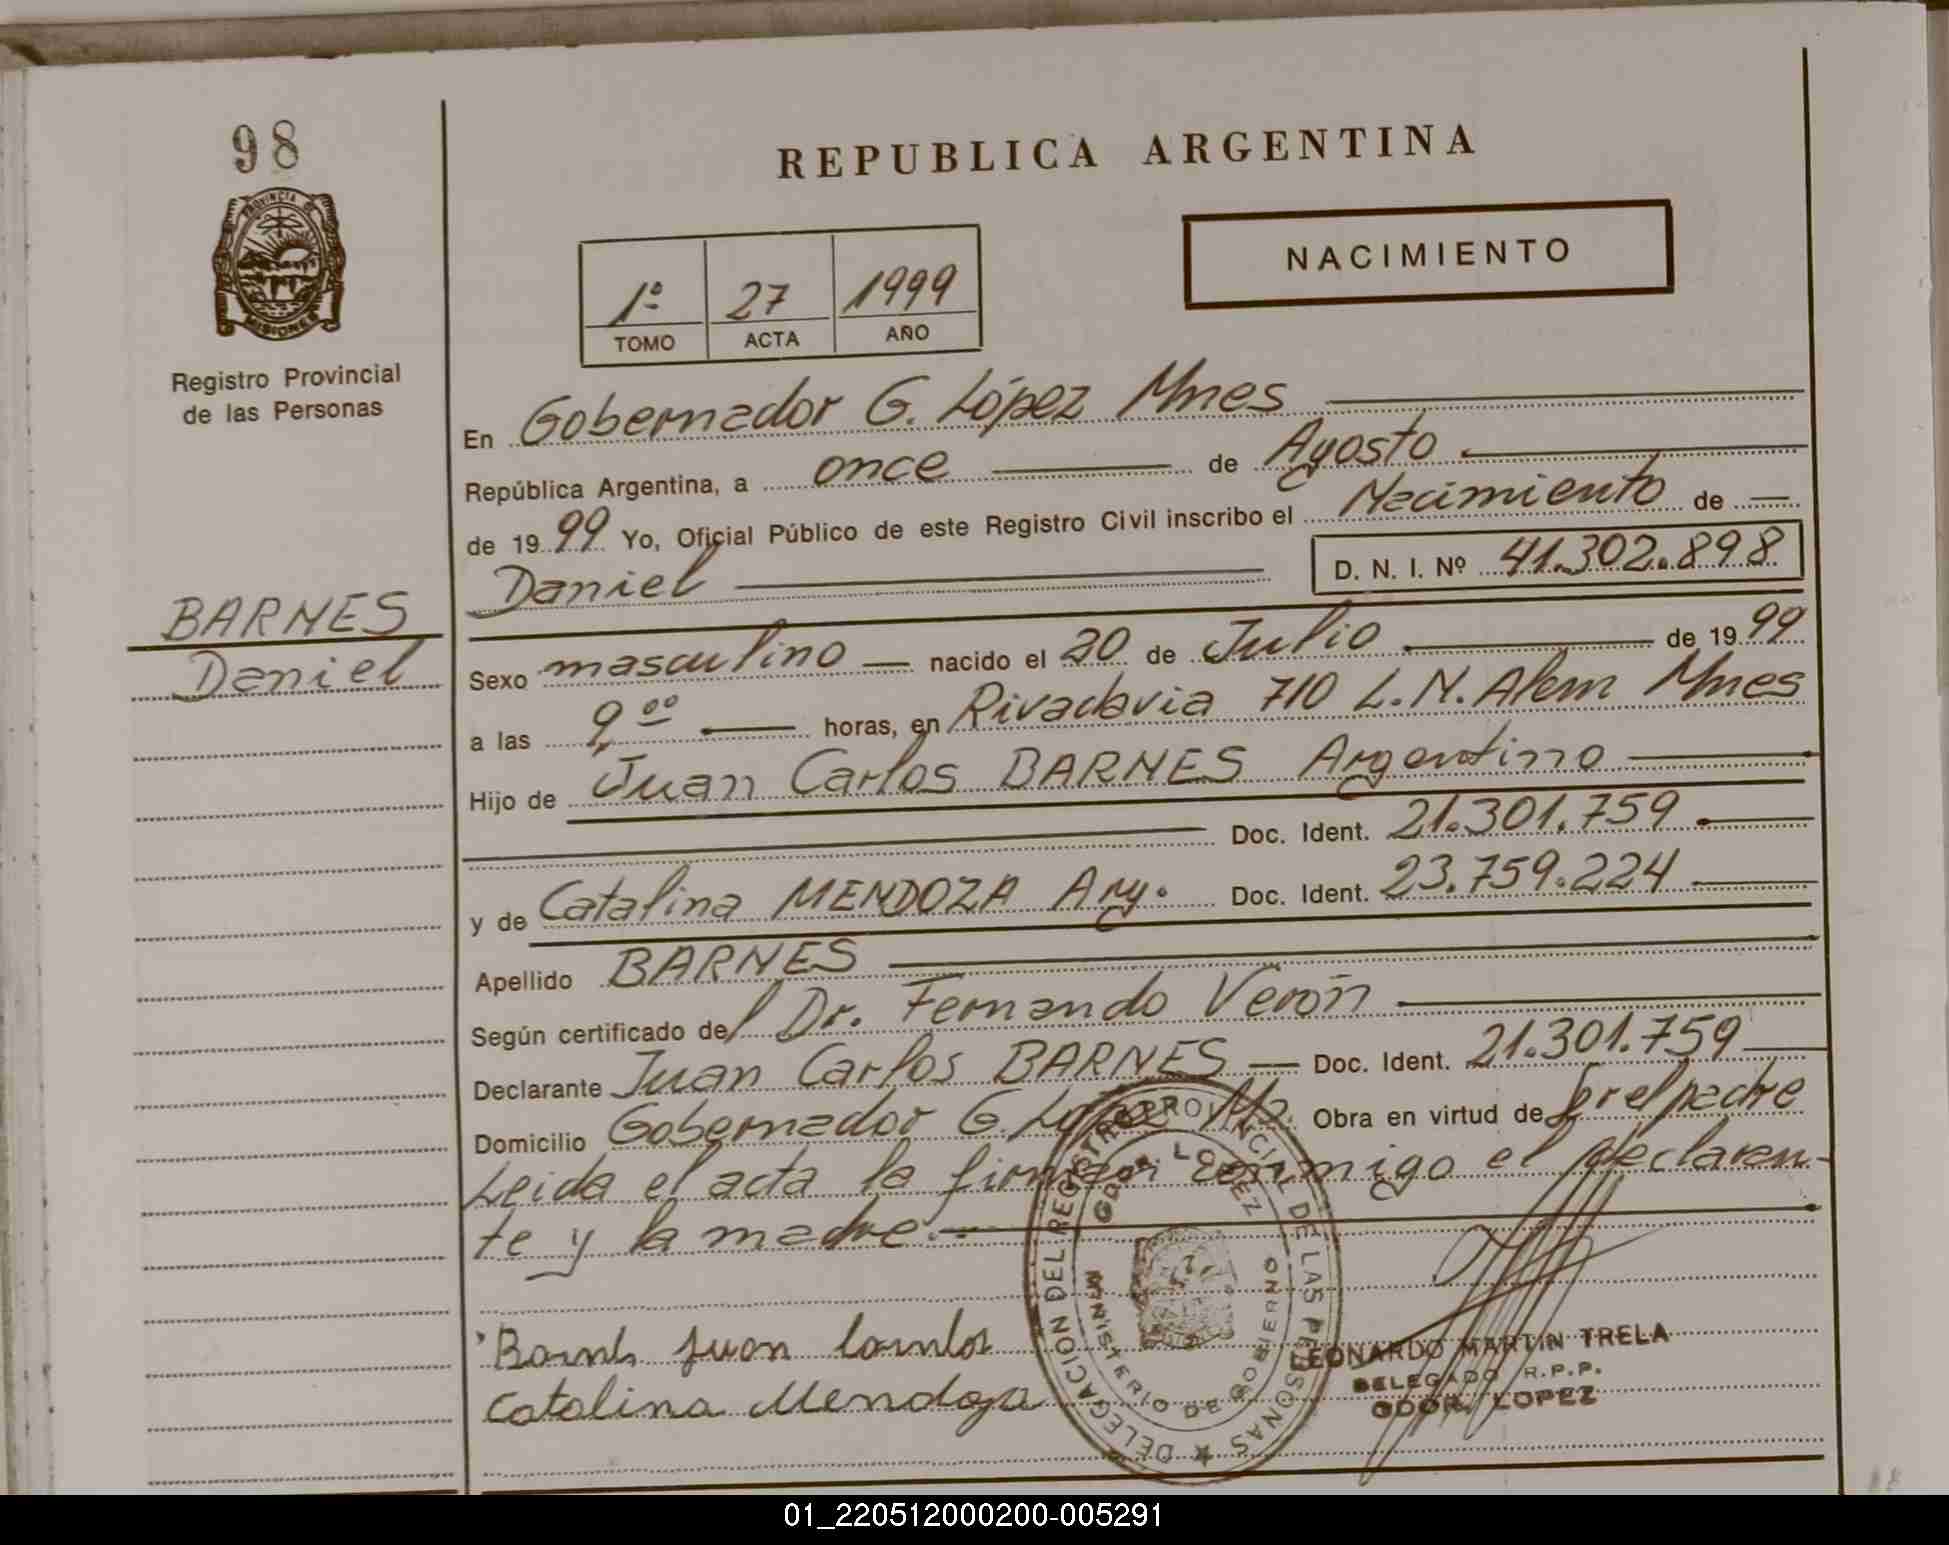 98
PROVINCIA DE
MISIONES
Registro Provincial
de las Personas
BARNES
Daniel
REPUBLICA ARGENTINA
NACIMIENTO
1º 27 1999
TOMO ACTA AÑO
En Gobernador G. López Mnes
República Argentina, a once de Agosto
de 1999 Yo, Oficial Público de este Registro Civil inscribo el Nacimiento de
Daniel D. N. I. Nº 41.302.898
Sexo masculino nacido el 20 de Julio de 1999
a las 9,00 horas, en Rivadavia 710 L.N.Alem Mnes
Hijo de Juan Carlos BARNES Argentino
Doc. Ident. 21.301.759
y de Catalina MENDOZA Arg. Doc. Ident. 23.759.224
Apellido BARNES
Según certificado del Dr. Fernando Verón
Declarante Juan Carlos BARNES Doc. Ident. 21.301.759
Domicilio Gobernador G. López Obra en virtud de Ser el padre
Leida el acta la firman conmigo el declaran-
te y la madre.
DELEGACION DEL REGISTRO PROVINCIAL DE LAS PERSONAS
GDOR. LOPEZ
MINISTERIO DE GOBIERNO
Juan
Catalina Mendoza
LEONARDO MARTIN TRELA
DELEGADO R.P.P.
GDOR. LOPEZ
01_220512000200-005291